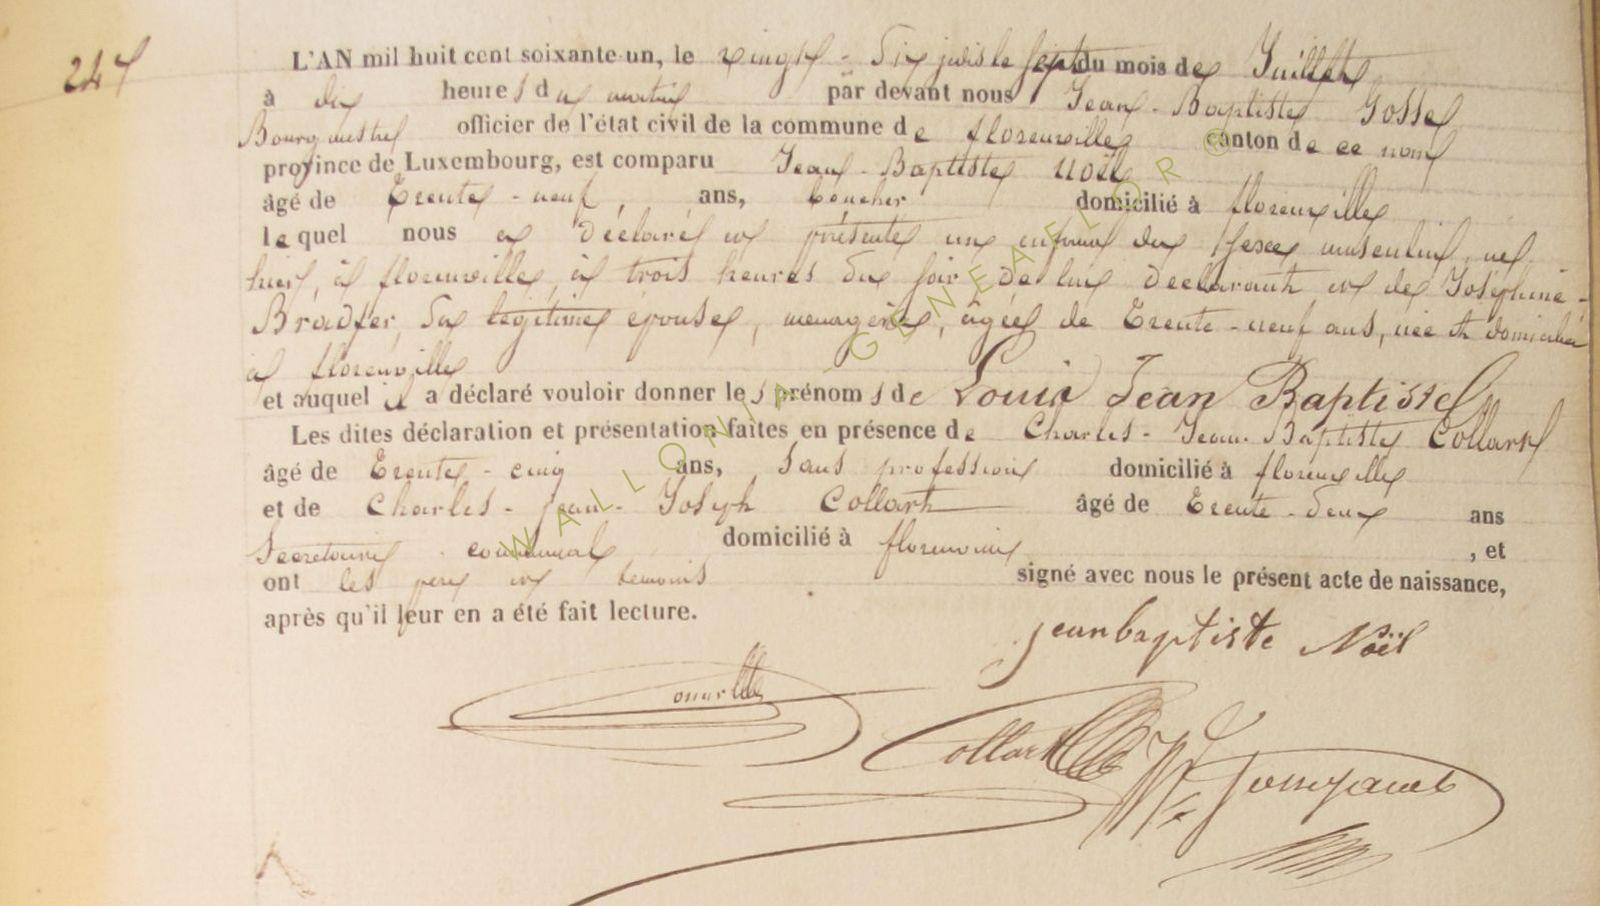 247
L'AN mil huit cent soixante-un, le vingt - six jdis le sept du mois de Juillet
à dix heures du matin par devant nous Jean - Baptiste Gosse
Bourgmestre officier de l'état civil de la commune de florenville canton de ce nom
province de Luxembourg, est comparu Jean - Baptiste Noël
âgé de Trente - neuf, ans, boucher domicilié à florenville
lequel nous a déclaré et présenté un enfant du sexe masculin, né
hier, à florenville, à trois heures du soir de lui déclarant et de Joséphine -
Bradfer, sa légitime épouse, menagère, âgée de Trente - neuf ans, née et domiciliée
à florenville
et auquel il a déclaré vouloir donner les prénoms de Louis Jean Baptiste
Les dites déclaration et présentation faites en présence de Charles - Jean - Baptiste Collart
âgé de Trente - cinq ans, sans profession domicilié à florenville
et de Charles - jean - Joseph Collart âgé de Trente - deux ans
Secretaire communal domicilié à florenville , et
ont les pere et temoins signé avec nous le présent acte de naissance,
après qu'il leur en a été fait lecture.
jeanbaptiste Noël
Collart
WALLONIA - GENEAFLOR ©